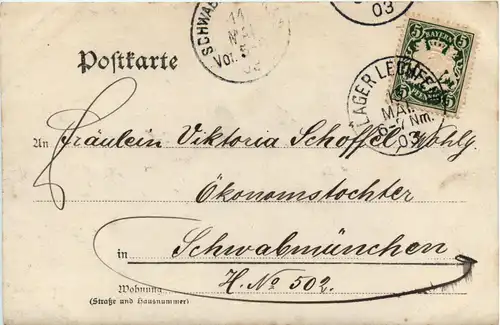 SCHWAB
14
MAI
Vor. 5
03
03
BAYERN
5 5
5 5
LAGER LECHFELD
MAI
6-7 Nm.
03
Postkarte
An Fräulein Viktoria Schoffel, Wohlg.
Ökonomstochter
in Schwabmünchen
Wohnung H. No 502.
(Straße und Hausnummer)